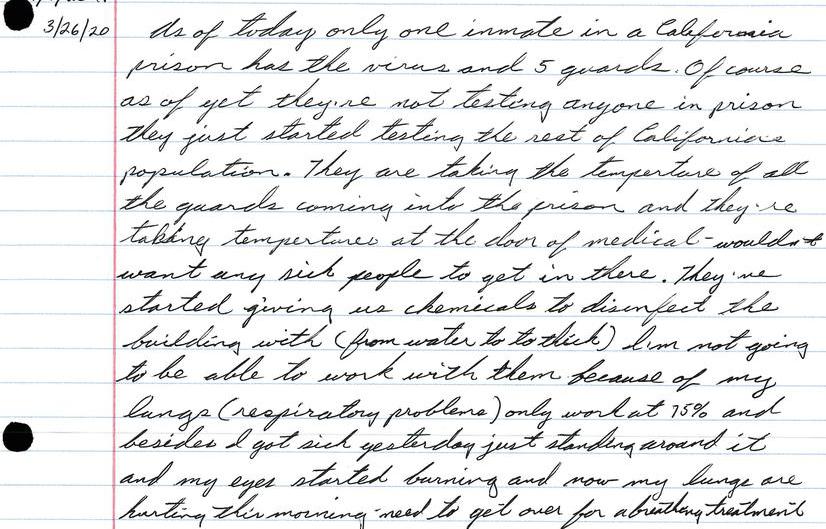 3/26/20 As of today only one inmate in a California
prison has the virus and 5 guards. Of course
as of yet they're not testing anyone in prison
they just started testing the rest of Californias
population. They are taking the temperture of all
the guards coming into the prison and they're
taking tempertures at the door of medical - wouldn't
want any sick people to get in there. They've
started giving us chemicals to disinfect the
building with (from water to to thick) I'm not going
to be able to work with them because of my
lungs (respiratory problems) only work at 75% and
besides I got sick yesterday just standing around it
and my eyes started burning and now my lungs are
hurting this morning - need to get over for a breathing treatment